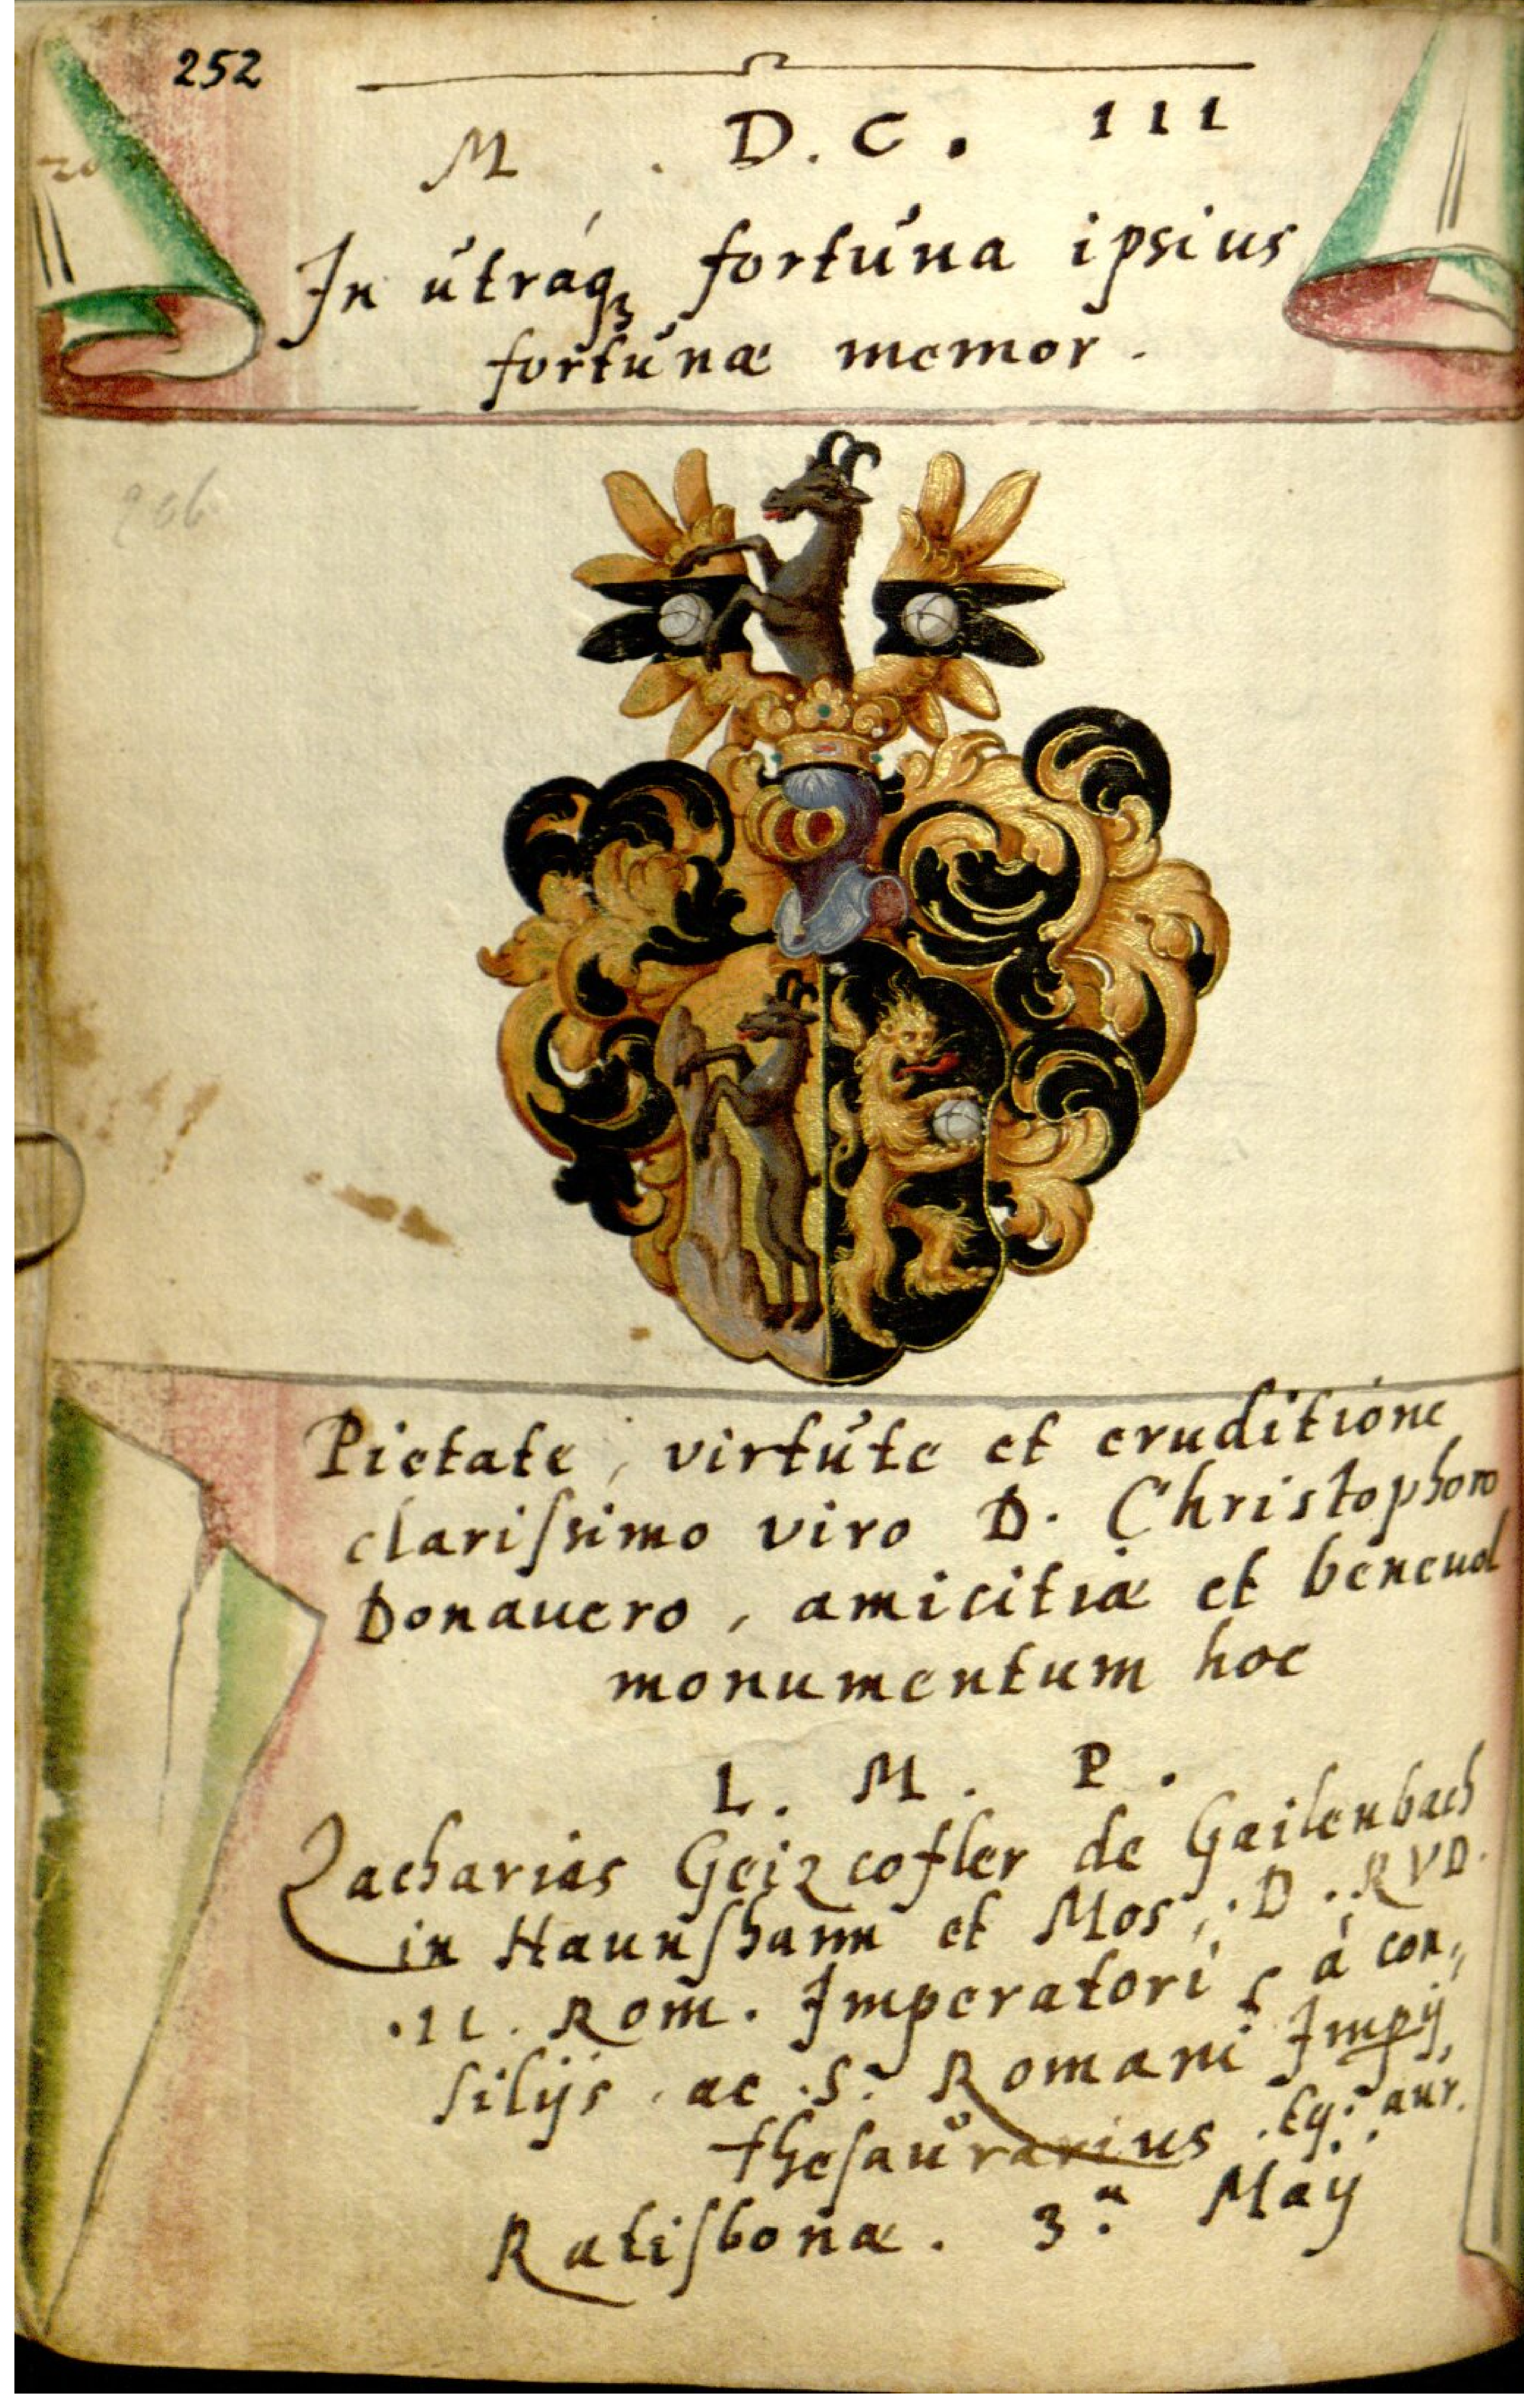 252
M . D. C. III
In utráqȝ fortuna ipsius
fortunæ memor.
206
Pietate, virtute et eruditione
clarißimo viro D. Christophoro
Donauero, amicitiæ et beneuol
monumentum hoc
L. M. P.
Zacharias Geizcofler de Gailenbach
in Haunſhaim et Mos, D. RVD.
II. Rom. Imperatori à con,,
ſilijs ac S. Romani Impij,
theſaurarius. Eq: aur.
Ratiſbonæ. 3. Maij